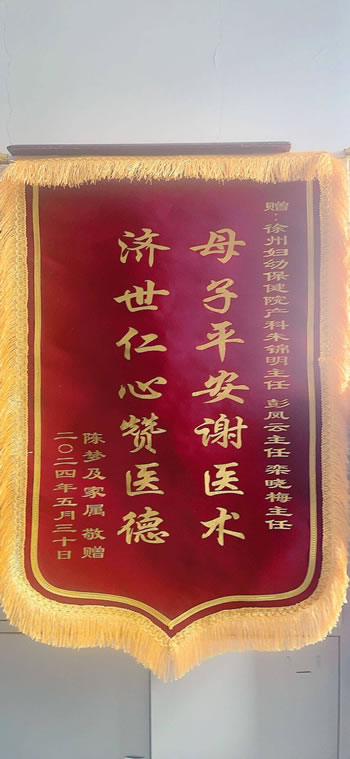 赠：徐州妇幼保健院产科朱锦明主任 彭凤云主任 栾晓梅主任
母子平安谢医术
济世仁心赞医德
陈梦及家属 敬赠
二〇二四年五月三十日